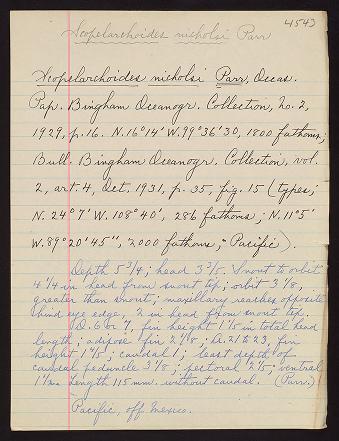 4543
Scopelarchoides nicholsi Parr
Scopelarchoides nicholsi Parr, Occas.
Pap. Bingham Oceanogr. Collection, no. 2,
1929, p. 16. N. 16°14' W. 99°36'30, 1800 fathoms;
Bull. Bingham Oceanogr. Collection, vol.
2, art. 4, Oct. 1931, p. 35, fig. 15 (types;
N. 24°7' W. 108°40', 286 fathoms; N. 11°5'
W. 89°20'45", 2000 fathoms; Pacific).
Depth 5 3/4; head 3 2/5. Snout to orbit
4 1/4 in head from snout tip; orbit 3 1/8,
greater than snout; maxillary reaches opposite
hind eye edge, 2 in head from snout tip.
D. 6 or 7, fin height 1 1/5 in total head
length; adipose fin 2 1/8; A. 21 to 23, fin
height 1 4/5; caudal 1; least depth of
caudal peduncle 3 1/8; pectoral 2 1/5; ventral
Length 115 mm. without caudal. (Parr.)
Pacific, off Mexico.